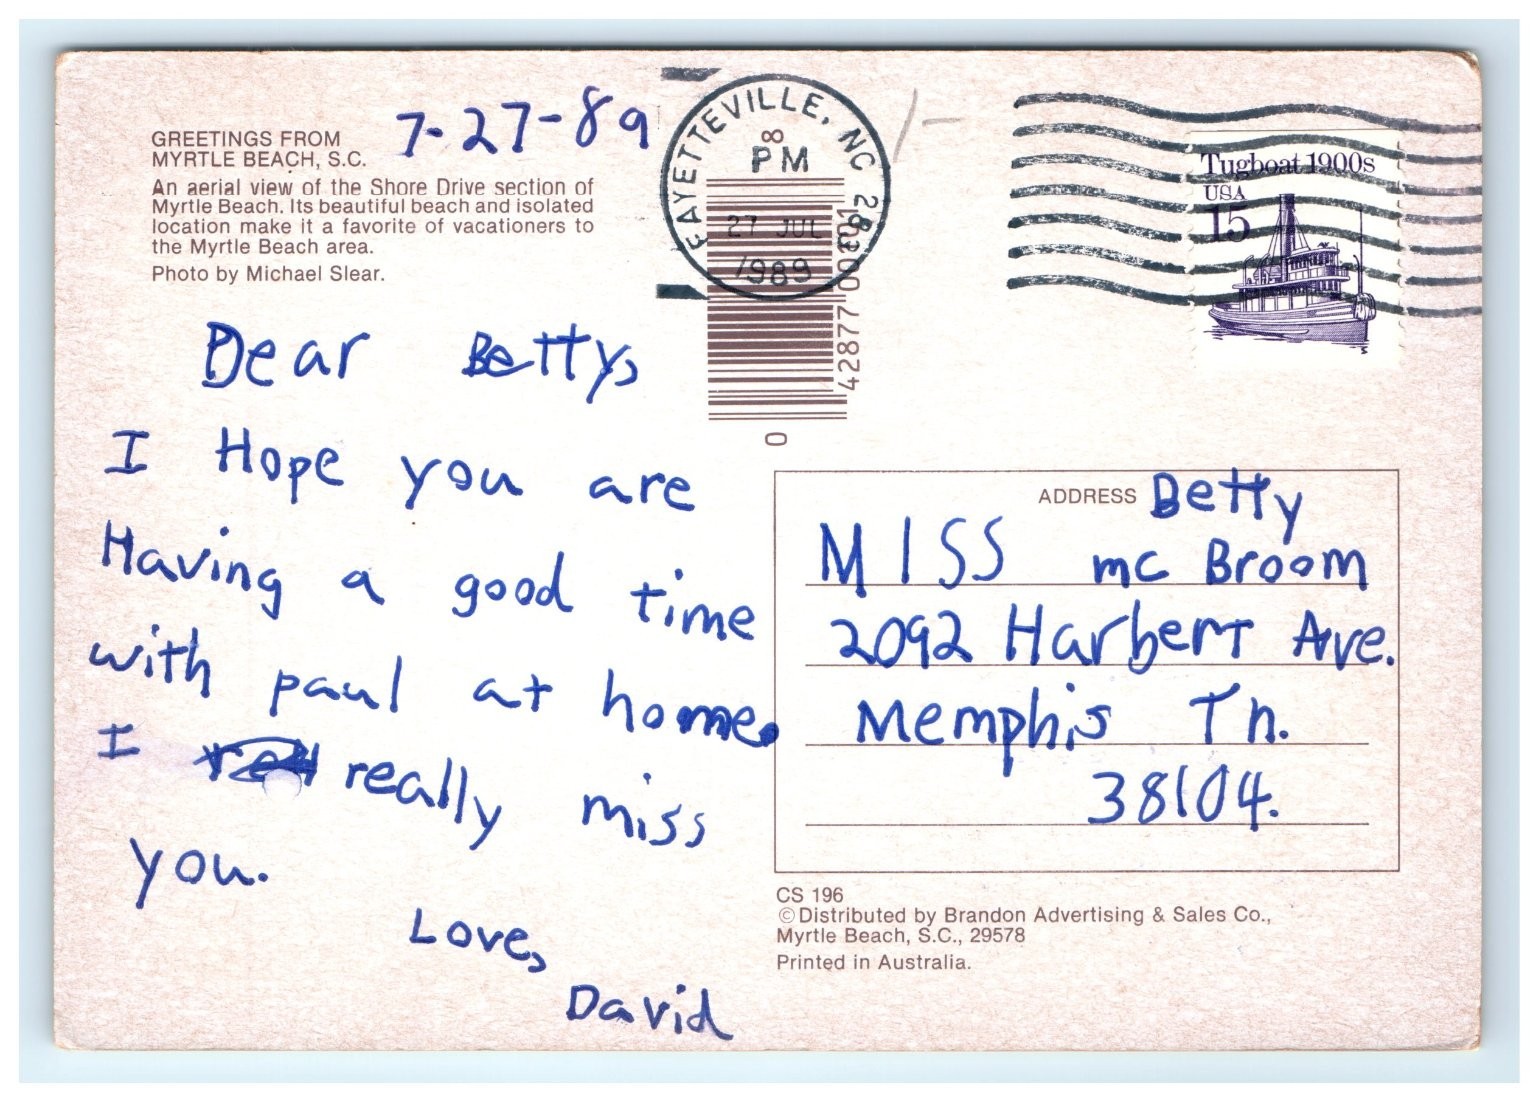 GREETINGS FROM
MYRTLE BEACH, S.C.
7-27-89
An aerial view of the Shore Drive section of
Myrtle Beach. Its beautiful beach and isolated
location make it a favorite of vacationers to
the Myrtle Beach area.
Photo by Michael Slear.
FAYETTEVILLE, NC 283
8
PM
27 JUL
1989
1/-
Tugboat 1900s
USA
15
42877 00
0
Dear Betty,
I Hope you are
Having a good time
with paul at home.
I really miss
you.
Love,
David
ADDRESS Betty
MISS mc Broom
2092 Harbert Ave.
Memphis Tn.
38104.
CS 196
©Distributed by Brandon Advertising & Sales Co.,
Myrtle Beach, S.C., 29578
Printed in Australia.